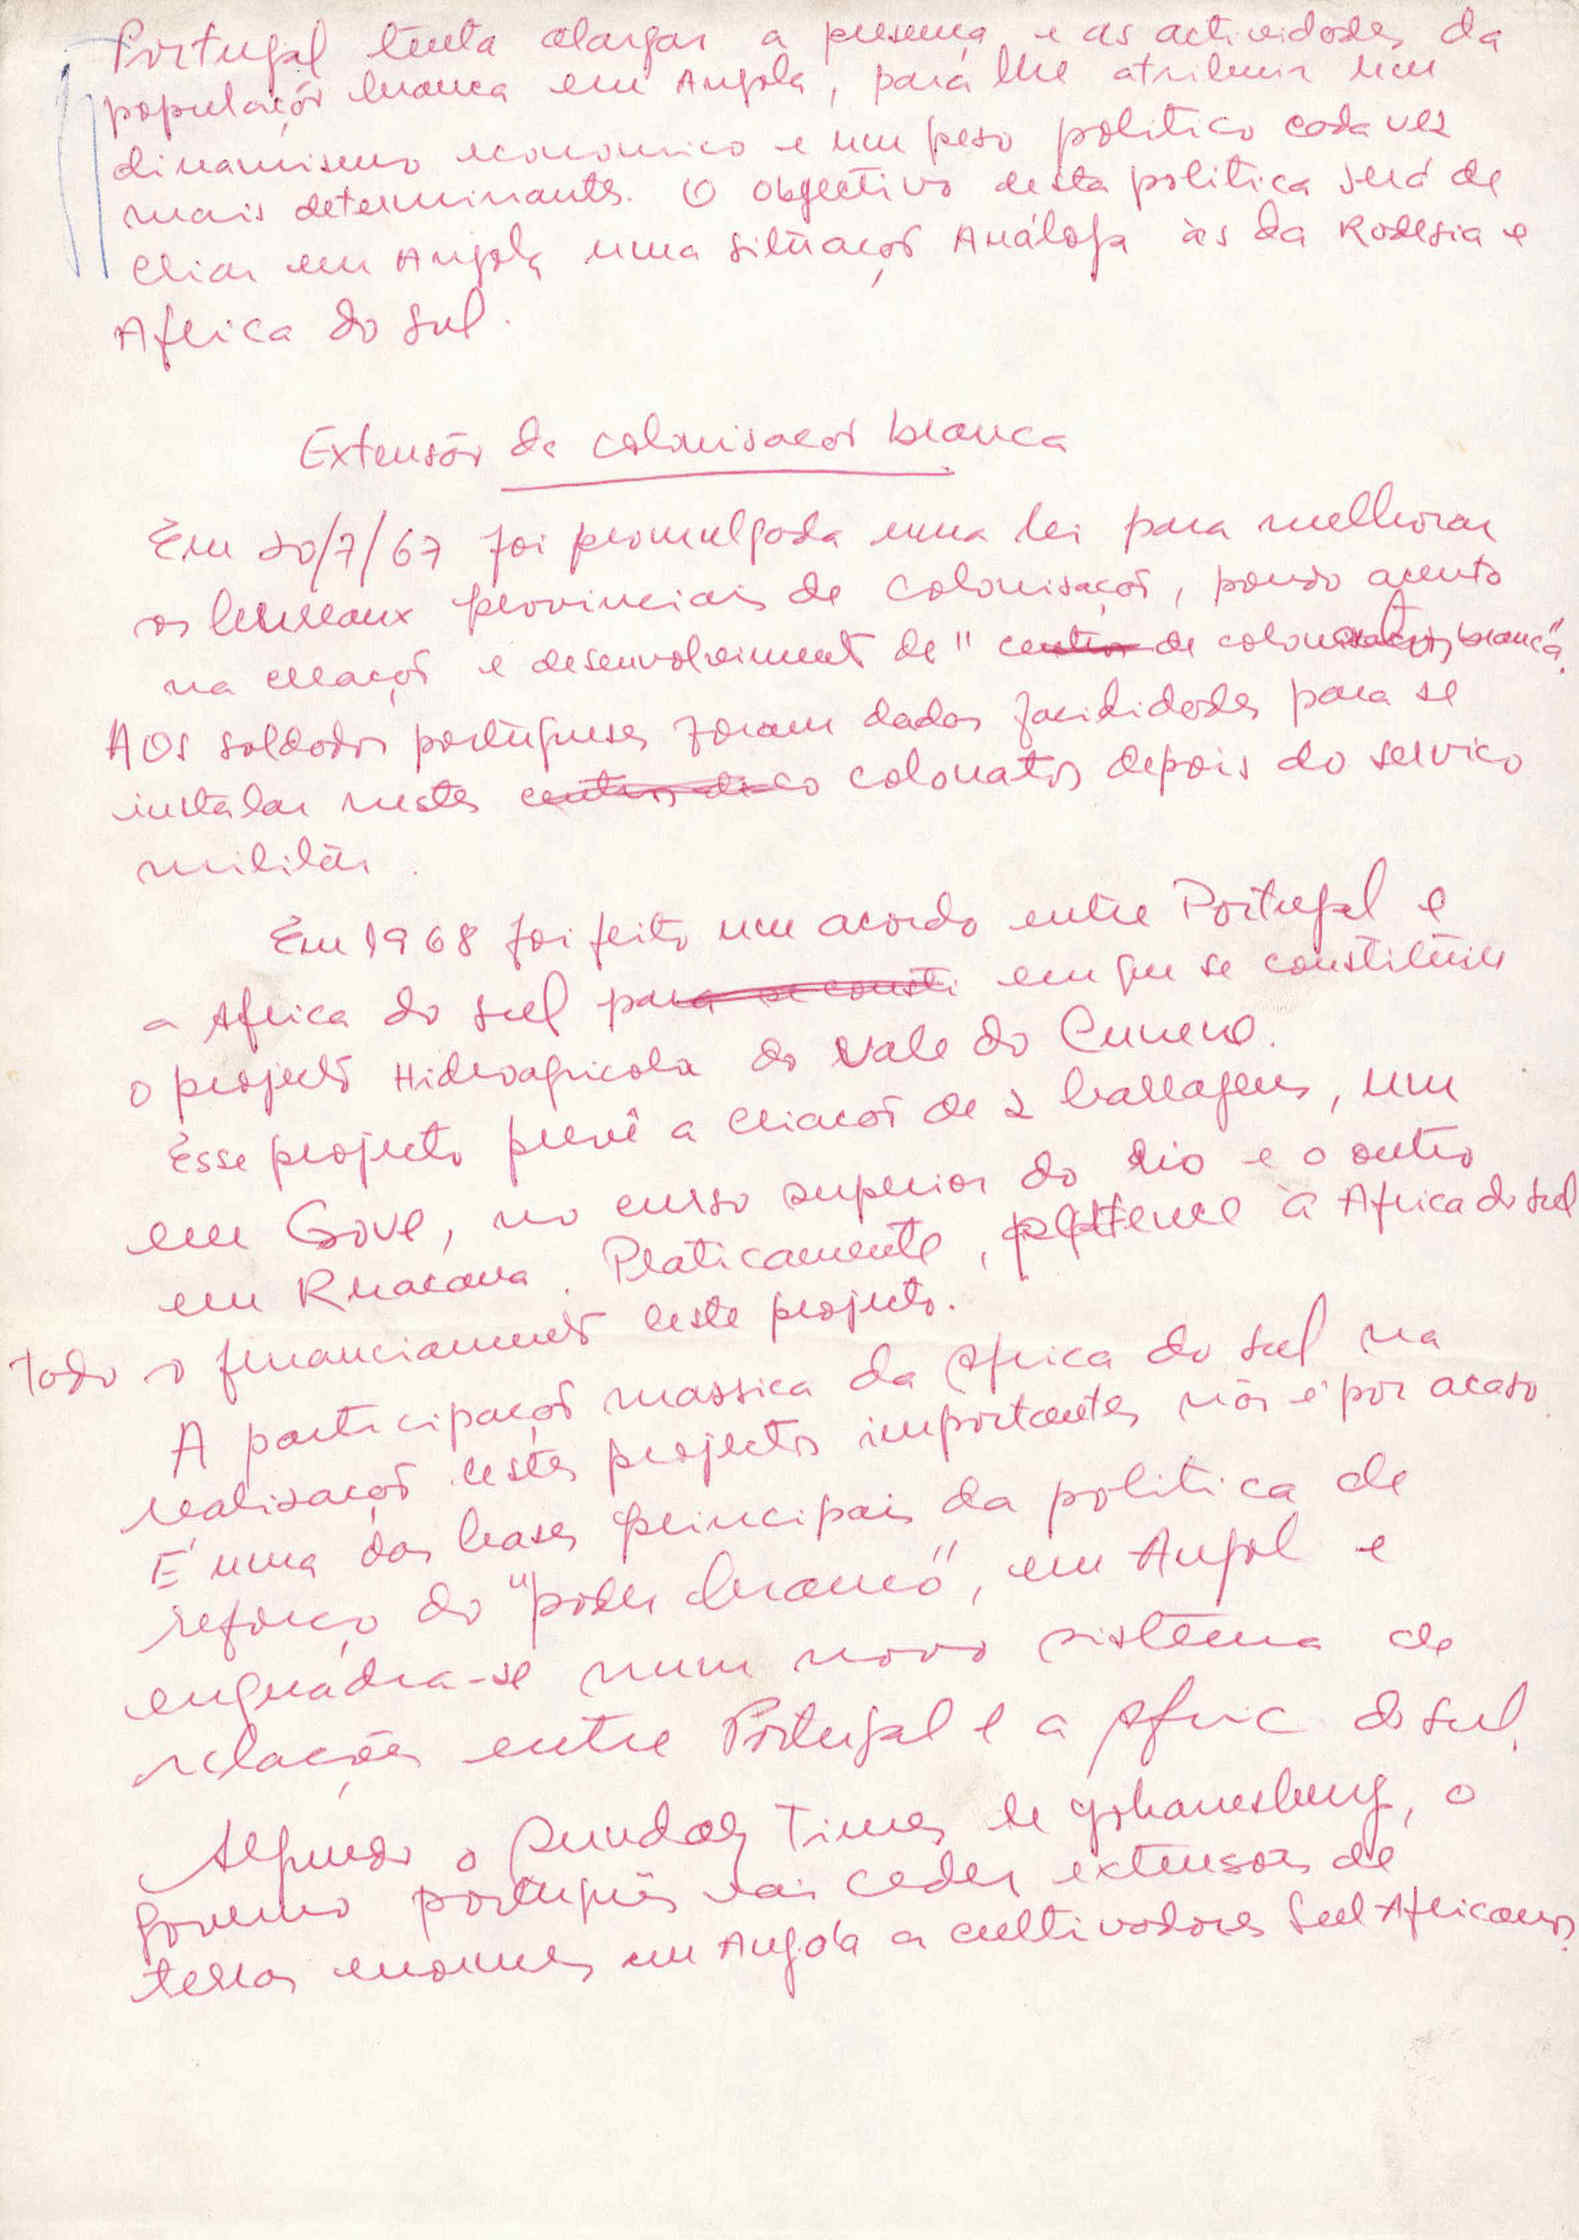 Portugal tenta alargar a presença e as actividades da
população branca em Angola, para lhe atribuir um
dinamismo economico e um peso politico cada vez
mais determinante. O objectivo desta politica será de
criar em Angola uma situação Análoga às da Rodesia e
Africa do Sul.
Extensão da colonisação branca
Em 20/7/67 foi promulgada uma lei para melhorar
os bureaux provinciais de colonisação, pondo acento
na criação e desenvolvimento de "centros de colonatos brancos".
AOS soldados portugueses foram dadas facilidades para se
instalar nestes centros de co colonatos depois do servico
militar.
Em 1968 foi feito um acordo entre Portugal e
a Africa do Sul para se consti em que se constituiu
o projecto Hidroagricola do Vale do Cunene.
Esse projecto prevê a criacão de 2 barragens, um
em Gove, no curso superior do rio e o outro
em Ruacana. Praticamente, pertence à Africa do Sul
todo o financiamento deste projecto.
A participação massica da Africa do Sul na
realisação destes projectos importantes não é por acaso.
E' uma das bases principais da politica de
reforço do "poder branco", em Angol e
enquadra-se num novo sistema de
relações entre Portugal e a Afric do Sul.
Segundo o Sunday Times de Johanesburg, o
governo português vai ceder extensões de
terras enormes em Angola a cultivadores Sul Africanos.